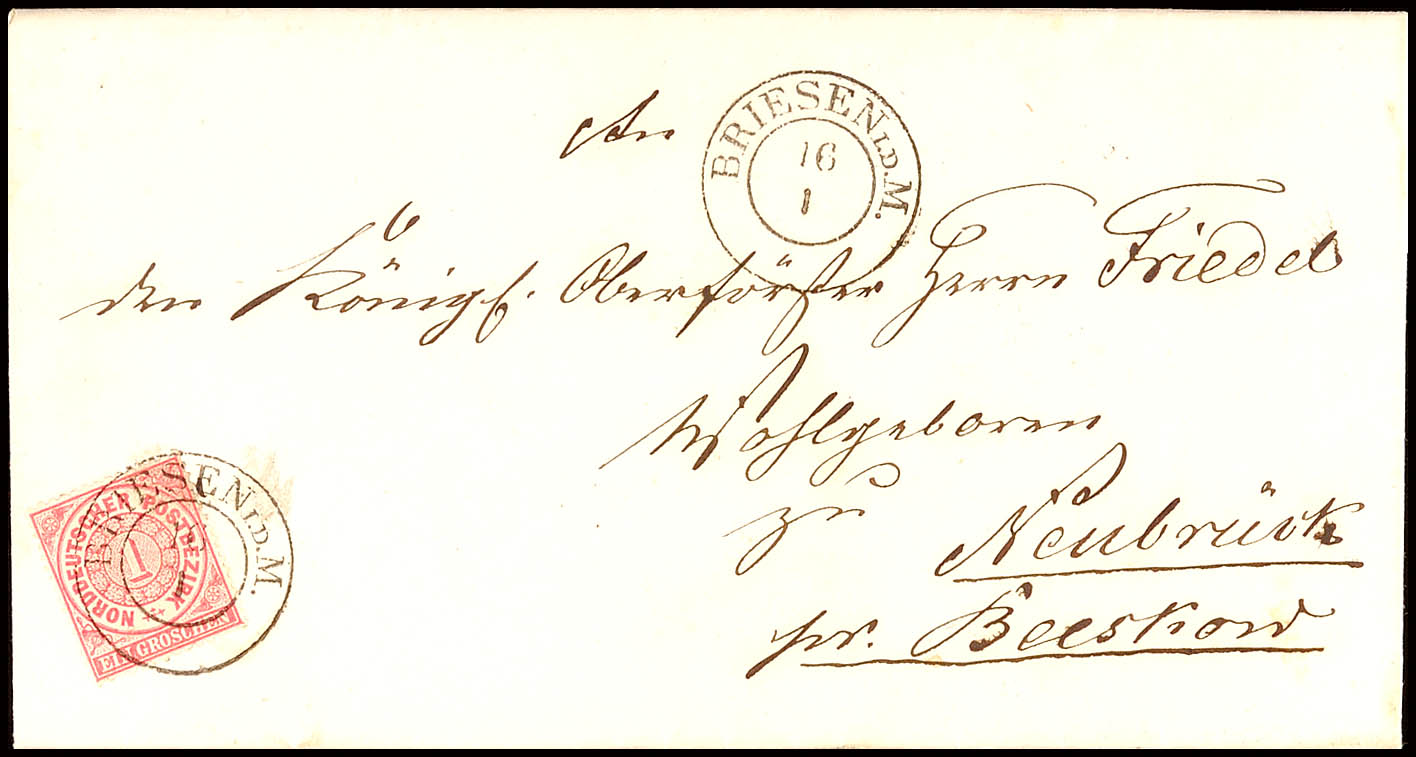 An
BRIESEN I.D.M.
16
1
den Königl. Oberförster Herrn Friedel
Wohlgeboren
zu Neubrück
pr. Beeskow
BRIESEN I.D.M.
NORDDEUTSCHER POSTBEZIRK
1
EIN GROSCHEN